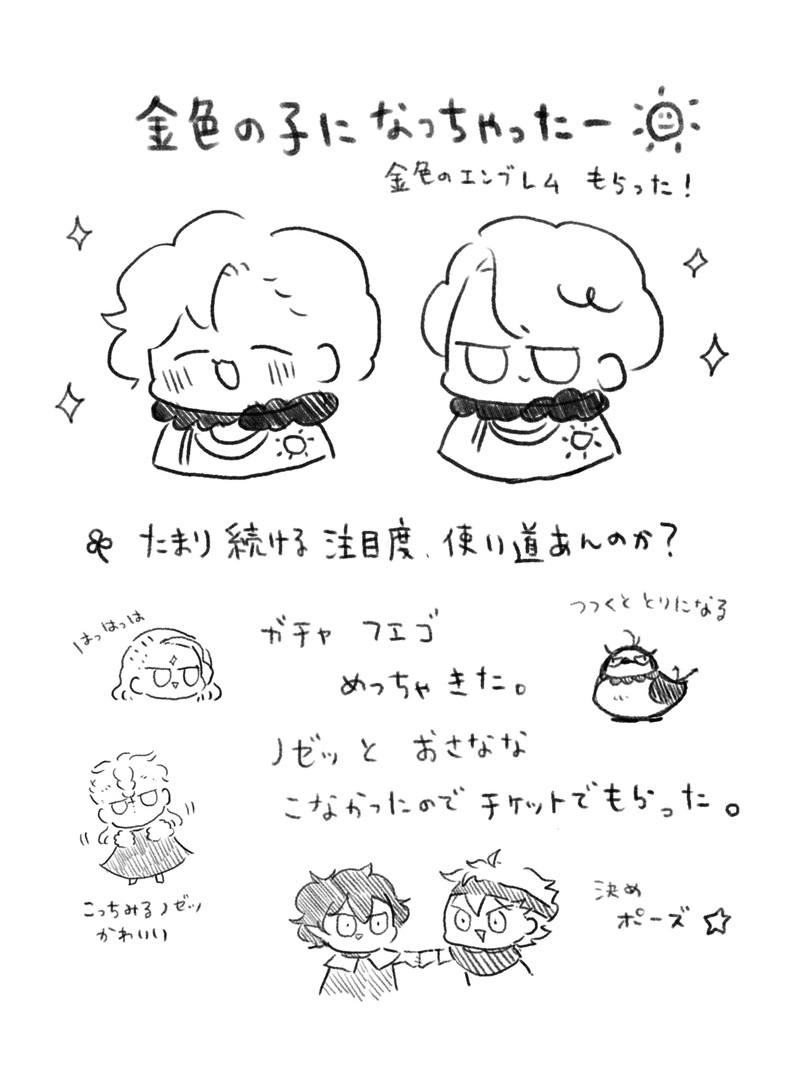 金色の子になっちゃったー
金色のエンブレム もらった!
たまり続ける注目度、使い道あんのか?
はっはっは
ガチャ フエゴ
めっちゃきた。
つつくと とりになる
ノゼッと おさなな
こなかったので チケットでもらった。
こっちみるノゼッ
かわいい
決め
ポーズ☆